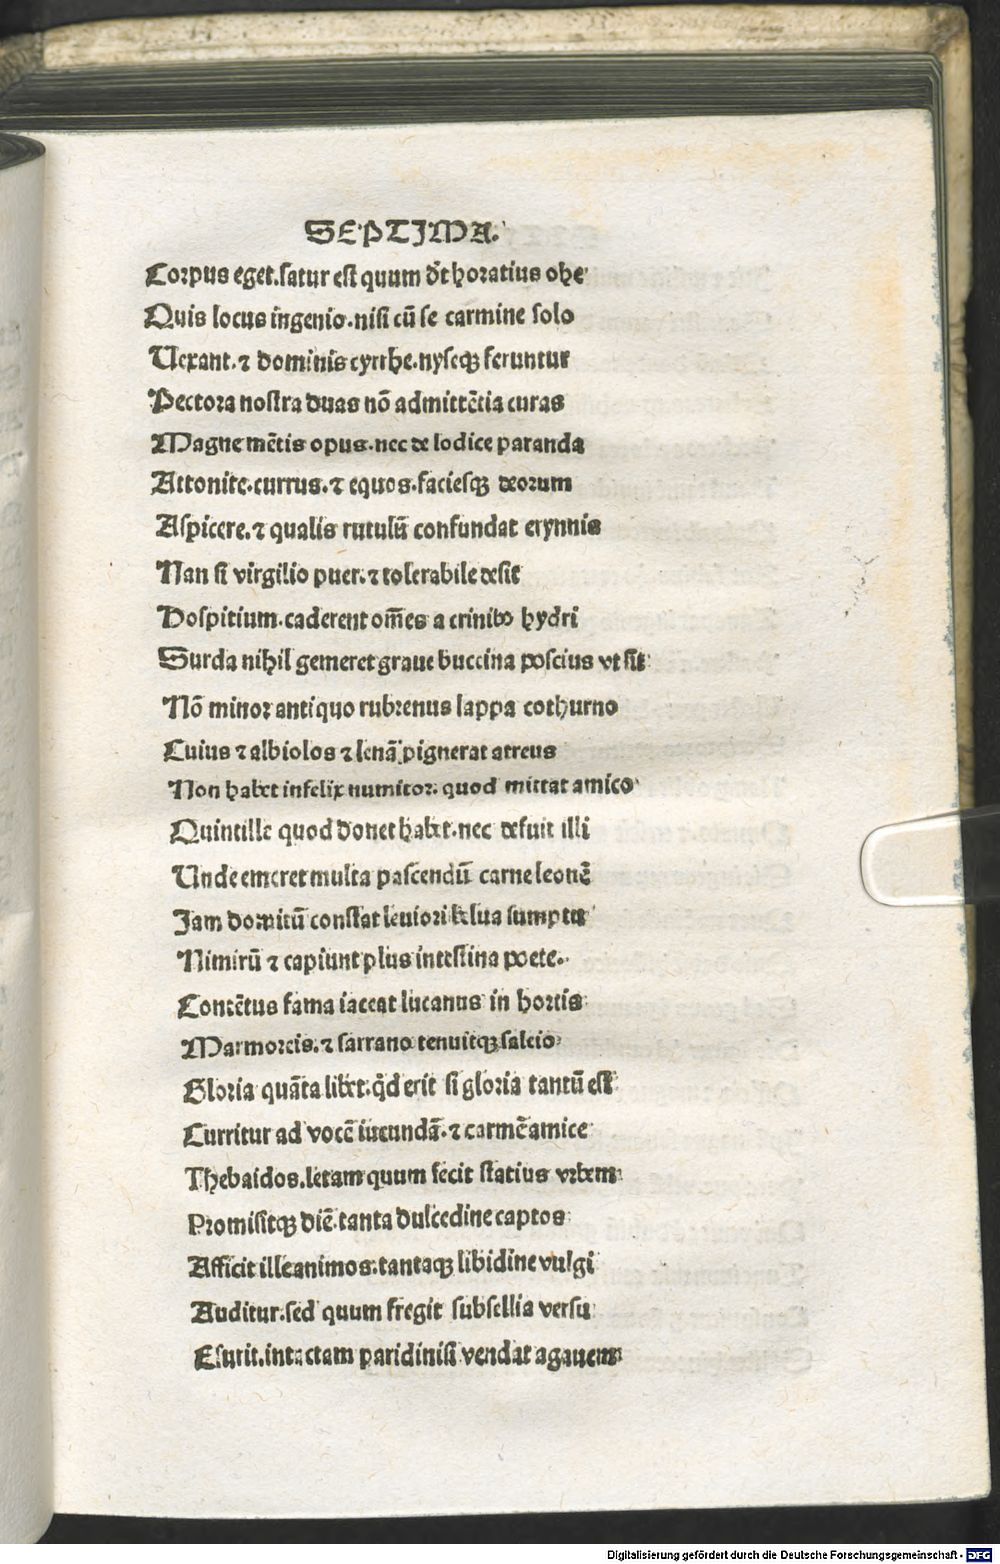 SEPTIMA.
Corpus eget.satur est quum dt̄ horatius ohe
Quis locus ingenio.nisi cū se carmine solo
Uexant.⁊ dominis cyrrhe.nyseqꝫ feruntur
Pectora nostra duas nō admittētia curas
Magne mētis opus.nec de lodice paranda
Attonite.currus.⁊ equos.faciesqꝫ deorum
Aspicere.⁊ qualis rutulū confundat erynnis
Nan si virgilio puer.⁊ tolerabile desit
Hospitium.caderent om̄es a crinibo hydri
Surda nihil gemeret graue buccina poscius vt sit
Nō minor antiquo rubrenus lappa cothurno
Cuius ⁊ albiolos ⁊ lenā pignerat atreus
Non habet infelix numitor: quod mittat amico
Quintille quod donet habet.nec defuit illi
Unde emeret multa pascendū carne leonē
Jam domitū constat leuiori belua sumptu
Nimirū ⁊ capiunt plus intestina poete.
Contētus fama iaceat lucanus in hortis
Marmoreis.⁊ sarrano tenuitqꝫ saleio
Gloria quāta libet.qd̄ erit si gloria tantū est
Curritur ad vocē iucundā.⁊ carmē amice
Thebaidos.letam quum fecit statius vrbem
Promisitqꝫ diē.tanta dulcedine captos
Afficit ille animos.tantaqꝫ libidine vulgi
Auditur.sed quum fregit subsellia versu
Esurit.intactam paridi nisi vendat agauem
Digitalisierung gefördert durch die Deutsche Forschungsgemeinschaft - DFG